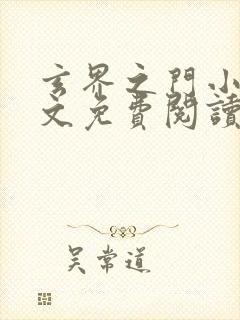 玄界之門小
文免費閱讀
吴常道